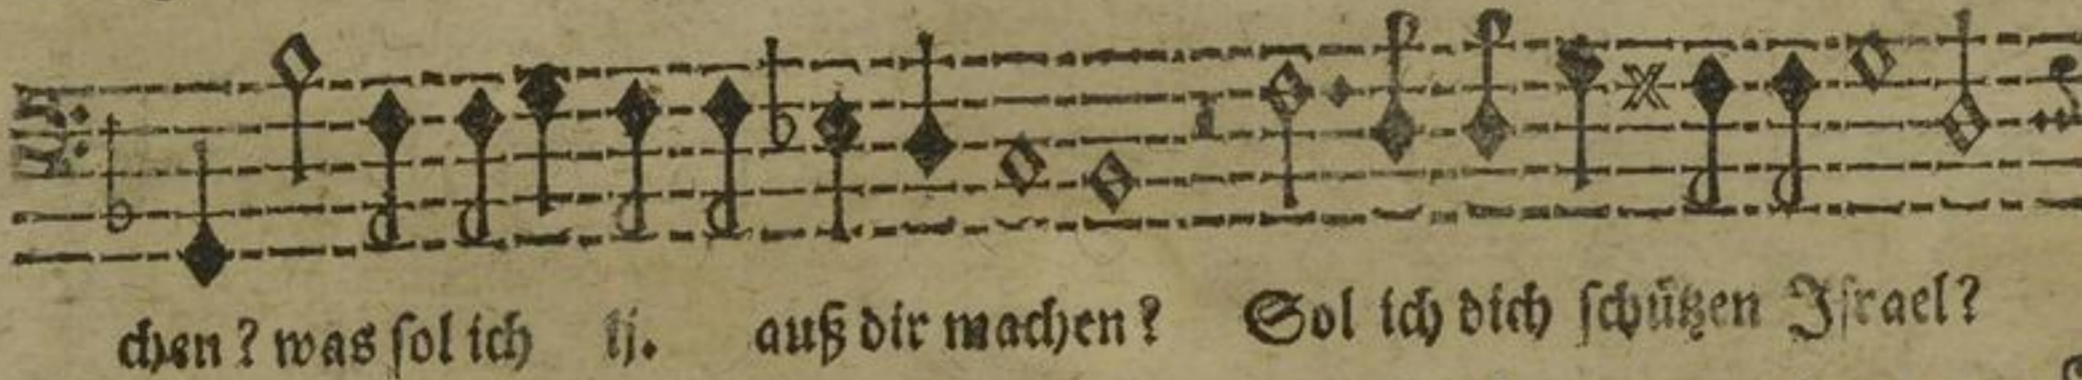 chen? was ſol ich ij. auß dir machen? Sol ich dich ſchützen Iſrael?